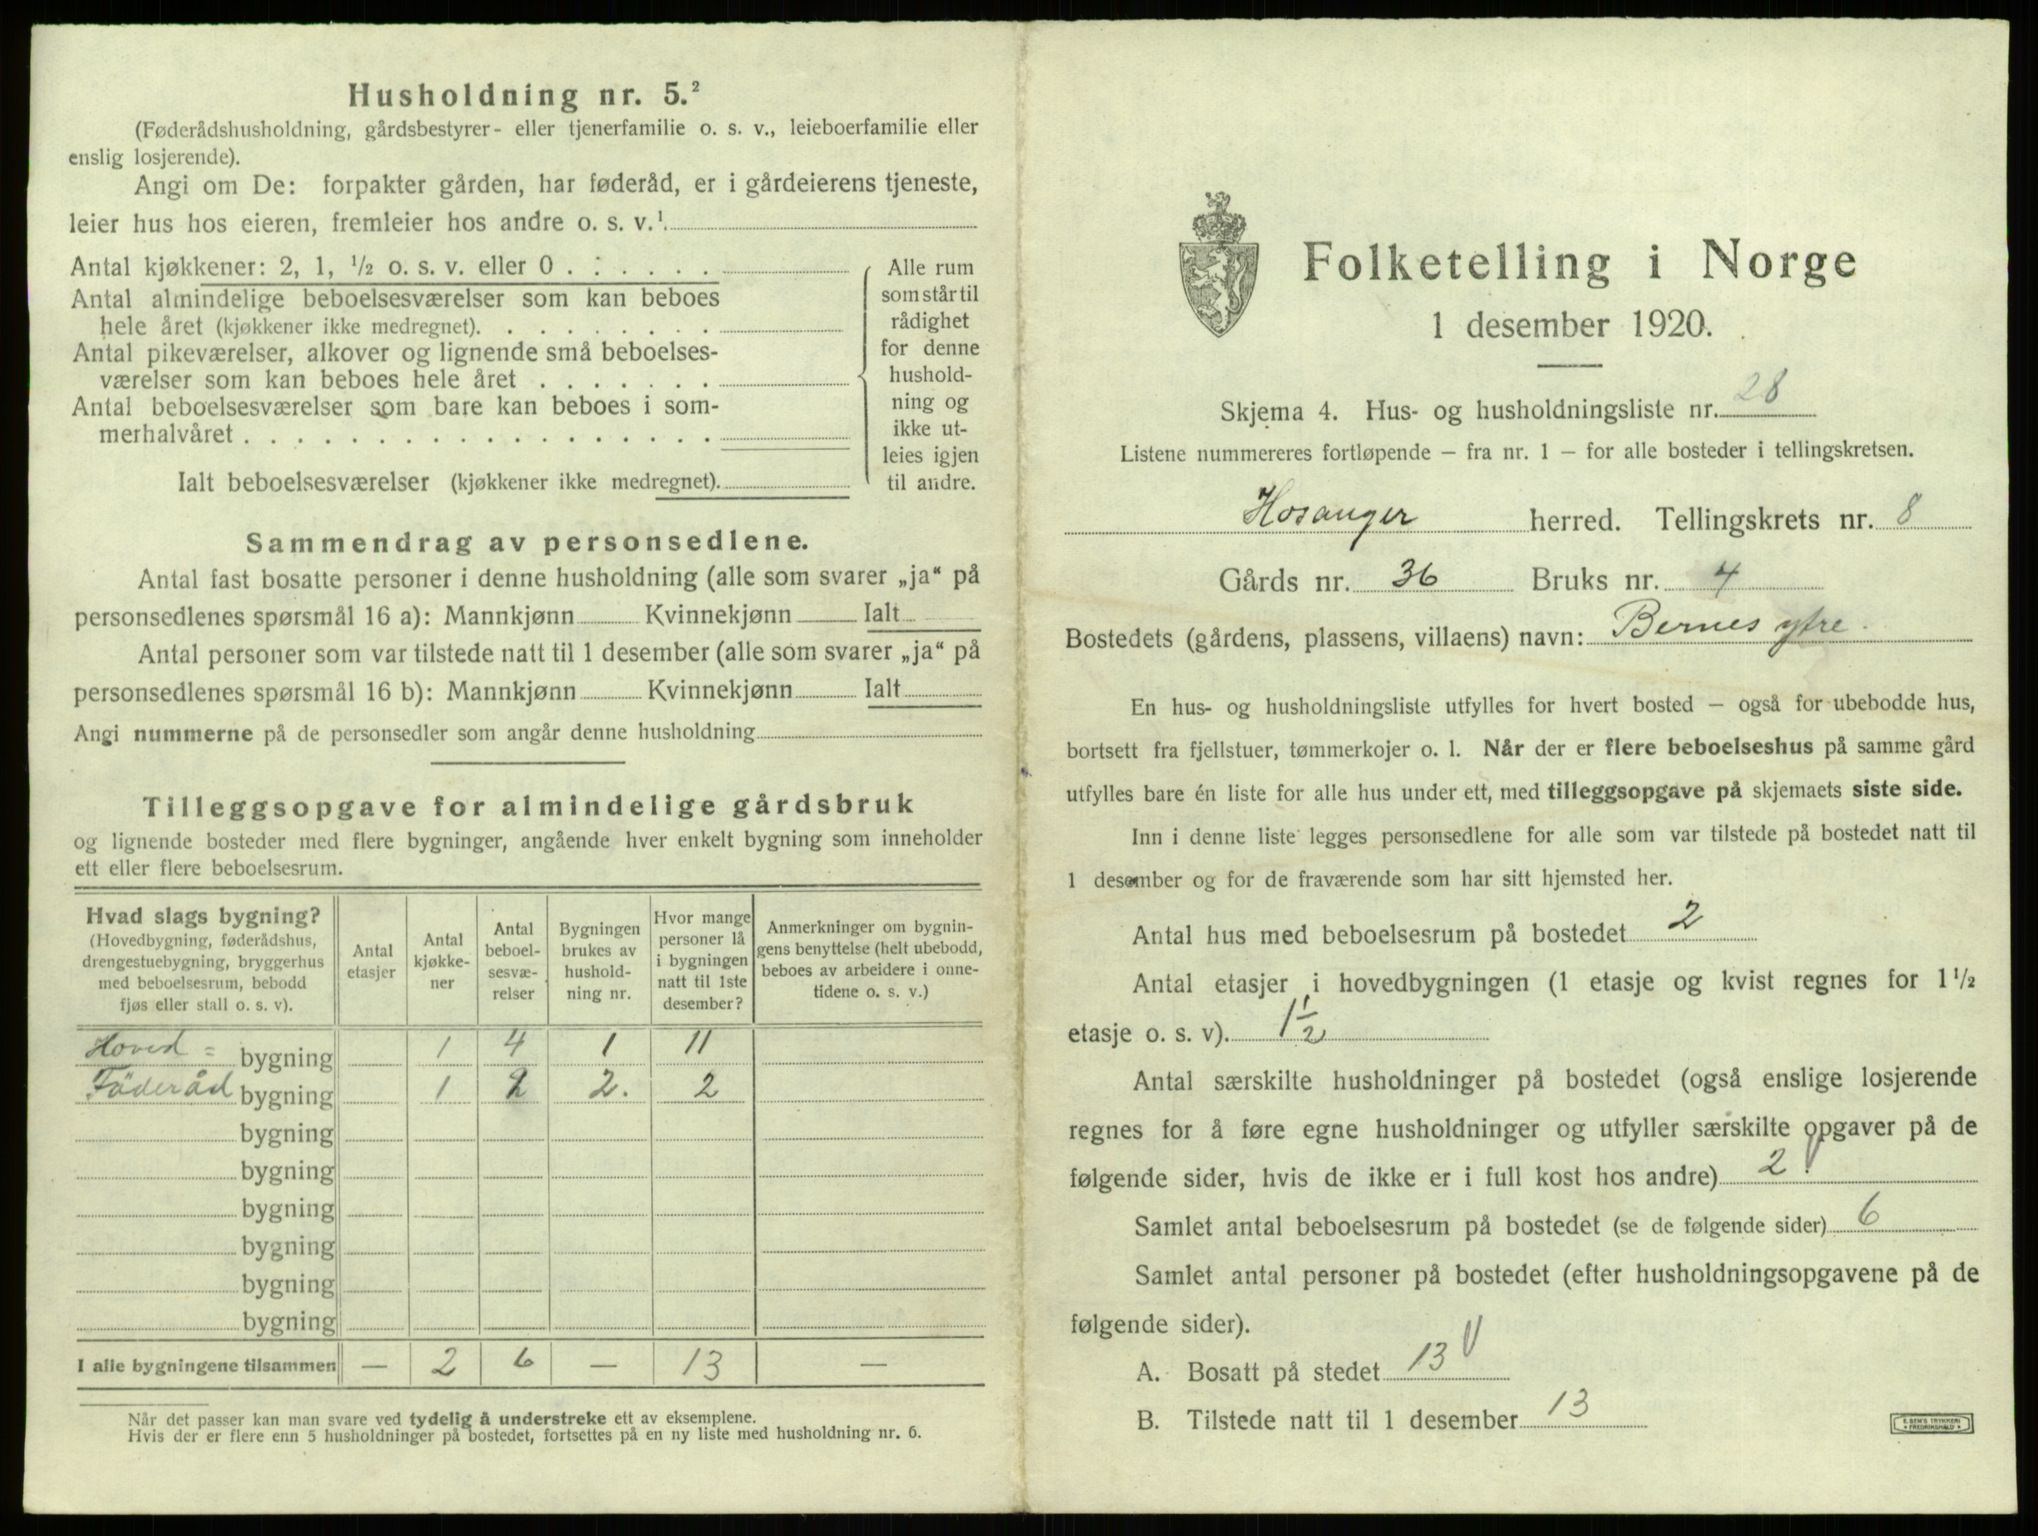 Husholdning nr. 5.²
(Føderådshusholdning, gårdsbestyrer- eller tjenerfamilie o. s. v., leieboerfamilie eller
enslig losjerende).
Angi om De: forpakter gården, har føderåd, er i gårdeierens tjeneste,
leier hus hos eieren, fremleier hos andre o. s. v.¹
Antal kjøkkener: 2, 1, ½ o. s. v. eller 0 . . . . . .
Antal almindelige beboelsesværelser som kan beboes
hele året (kjøkkener ikke medregnet). . . . . . . . .
Antal pikeværelser, alkover og lignende små beboelses-
værelser som kan beboes hele året . . . . . . .
Antal beboelsesværelser som bare kan beboes i som-
merhalvåret . . . . . . . . . . . . . . . . . .
Ialt beboelsesværelser (kjøkkener ikke medregnet).
Alle rum
som står til
rådighet
for denne
hushold-
ning og
ikke ut-
leies igjen
til andre.
Sammendrag av personsedlene.
Antal fast bosatte personer i denne husholdning (alle som svarer „ja“ på
personsedlenes spørsmål 16 a): Mannkjønn Kvinnekjønn Ialt
Antal personer som var tilstede natt til 1 desember (alle som svarer „ja“ på
personsedlenes spørsmål 16 b): Mannkjønn Kvinnekjønn Ialt
Angi nummerne på de personsedler som angår denne husholdning
Tilleggsopgave for almindelige gårdsbruk
og lignende bosteder med flere bygninger, angående hver enkelt bygning som inneholder
ett eller flere beboelsesrum.
Hvad slags bygning?
(Hovedbygning, føderådshus,
drengestuebygning, bryggerhus
med beboelsesrum, bebodd
fjøs eller stall o. s. v).
Antal
etasjer
Antal
kjøkke-
ner
Antal
beboel-
sesvæ-
relser
Bygningen
brukes av
hushold-
ning nr.
Hvor mange
personer lå
i bygningen
natt til 1ste
desember?
Anmerkninger om bygnin-
gens benyttelse (helt ubebodd,
beboes av arbeidere i onne-
tidene o. s. v.)
Hoved= bygning 1 4 1 11
Föderåd bygning 1 2 2. 2
bygning
bygning
bygning
bygning
bygning
bygning
I alle bygningene tilsammen — 2 6 — 13 —
Når det passer kan man svare ved tydelig å understreke ett av eksemplene.
Hvis der er flere enn 5 husholdninger på bostedet, fortsettes på en ny liste med husholdning nr. 6.
Folketelling i Norge
1 desember 1920.
Skjema 4. Hus- og husholdningsliste nr. 28
Listene nummereres fortløpende — fra nr. 1 — for alle bosteder i tellingskretsen.
Hosanger herred. Tellingskrets nr. 8
Gårds nr. 36 Bruks nr. 4
Bostedets (gårdens, plassens, villaens) navn: Bernes ytre.
En hus- og husholdningsliste utfylles for hvert bosted — også for ubebodde hus,
bortsett fra fjellstuer, tømmerkojer o. l. Når der er flere beboelseshus på samme gård
utfylles bare én liste for alle hus under ett, med tilleggsopgave på skjemaets siste side.
Inn i denne liste legges personsedlene for alle som var tilstede på bostedet natt til
1 desember og for de fraværende som har sitt hjemsted her.
Antal hus med beboelsesrum på bostedet 2
Antal etasjer i hovedbygningen (1 etasje og kvist regnes for 1½
etasje o. s. v). 1½
Antal særskilte husholdninger på bostedet (også enslige losjerende
regnes for å føre egne husholdninger og utfyller særskilte opgaver på de
følgende sider, hvis de ikke er i full kost hos andre) 2
Samlet antal beboelsesrum på bostedet (se de følgende sider) 6
Samlet antal personer på bostedet (efter husholdningsopgavene på de
følgende sider).
A. Bosatt på stedet 13
B. Tilstede natt til 1 desember 13
E. SEM'S TRYKKERI
FREDRIKSHALD